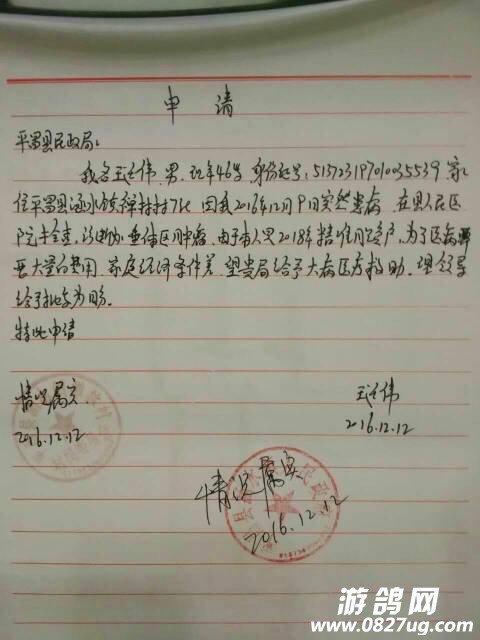 申 请
平昌县民政局:
我名王仕伟,男,现年46岁,身份证号:513723197010035539 家
住平昌县涵水镇禅村村7社 因我2016年12月9日突然患病,在县人民医
院检查,诊断为垂体区肿瘤,由于本人是2018年精准脱贫户,为了医病需
要大量的费用,家庭经济条件差,望贵局给予大病医疗救助。望领导
给予批准为盼。
特此申请
情况属实.
2016.12.12
王仕伟
2016.12.12
情况属实
2016.12.12
游鸽网
www.0827ug.com